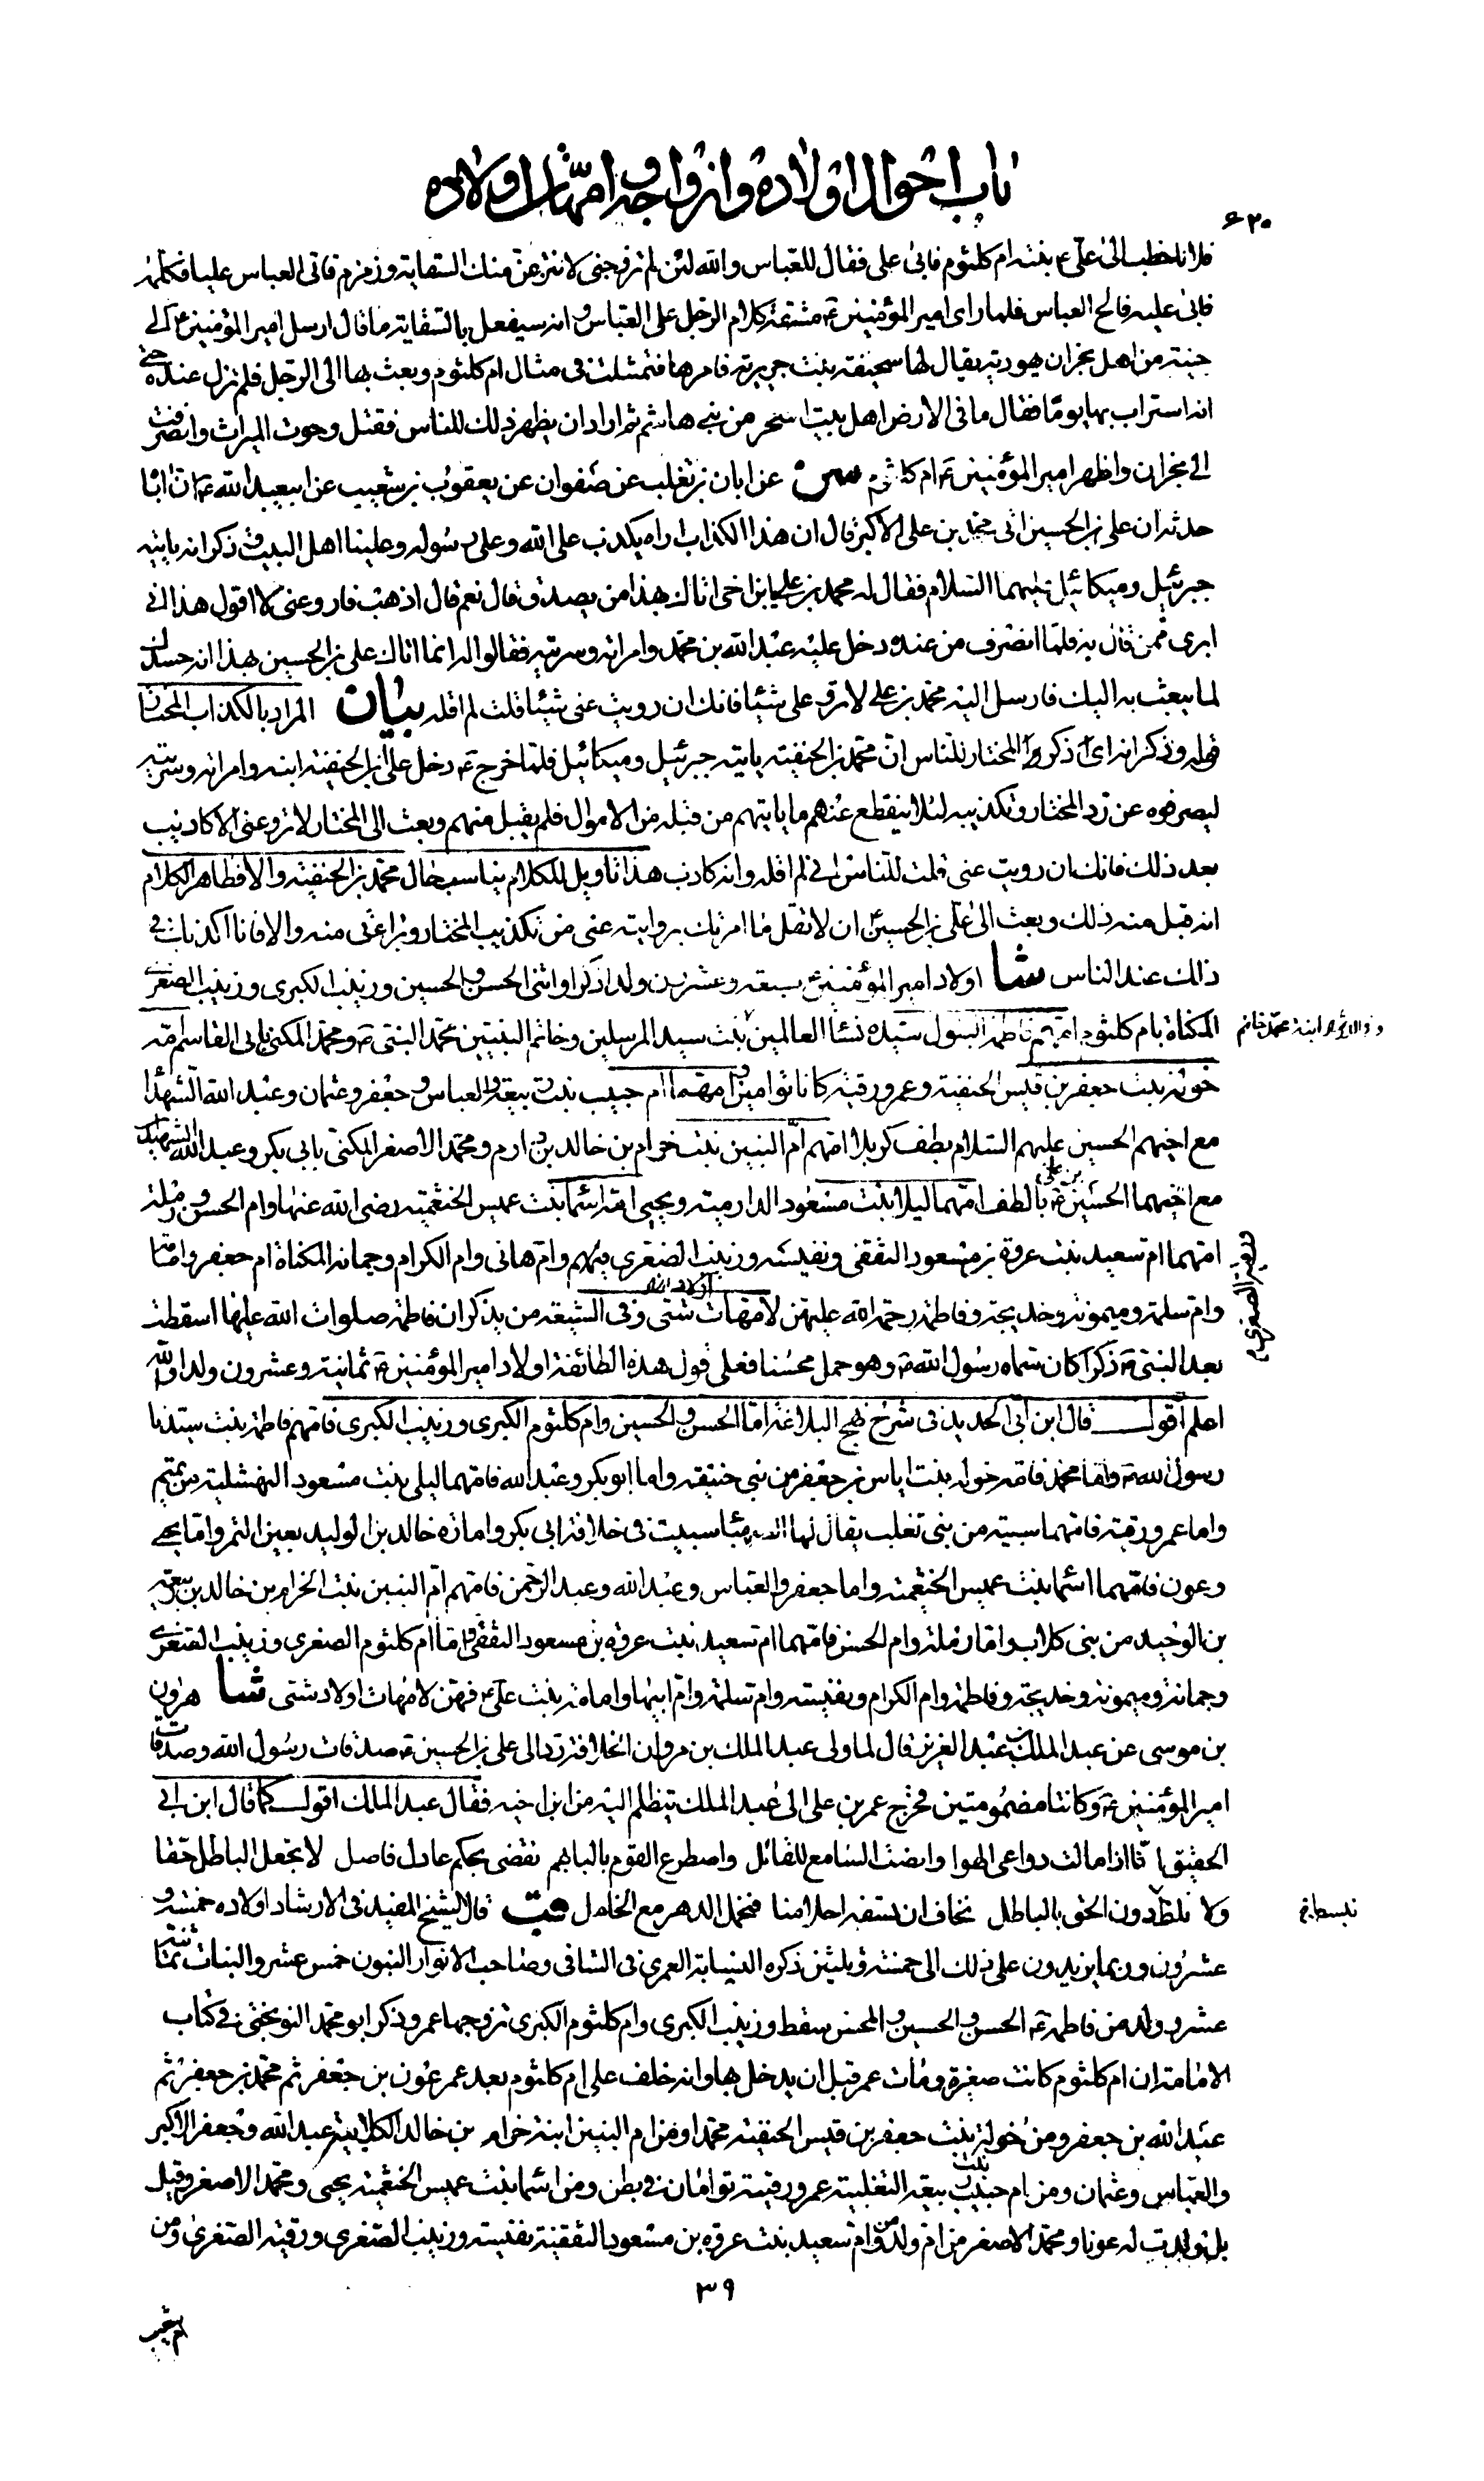 باب احوال اولاده وازواجه وامهات اولاده
۶۲۰
فلانا خطب الى علي ع بنته ام كلثوم فابى علي فقال للعباس والله لئن لم تزوجني لانتزعن منك السقاية وزمزم فاتى العباس عليا فكلمه
فابى عليه فالح العباس فلما راى امير المؤمنين ع مشقة كلام الرجل على العباس وانه سيفعل بالسقاية ما قال ارسل امير المؤمنين ع الى
جنية من اهل نجران يهودية يقال لها سحيفة بنت جريرية فامرها فتمثلت في مثال ام كلثوم وبعث بها الى الرجل فلم تزل عنده حتى
انه استراب بها يوما فقال ما في الارض اهل بيت اسحر من بني هاشم ثم اراد ان يظهر ذلك للناس فقتل وحوت الميراث وانصرفت
الى نجران واظهر امير المؤمنين ع ام كلثوم سن عن ابان بن تغلب عن صفوان عن يعقوب بن شعيب عن ابي عبد الله ع ان ابا
حدثه ان علي بن الحسين اتى محمد بن علي الاكبر قال ان هذا الكذاب اراه يكذب على الله وعلى رسوله وعلينا اهل البيت وذكر انه ياتيه
جبرئيل وميكائيل عليهما السلام فقال له محمد بن علي يا بن اخي اتاك بهذا من يصدق قال نعم قال اذهب فارو عني لا اقول هذا اني
ابرئ ممن قال به فلما انصرف من عنده دخل عليه عبد الله بن محمد وامراته وسريته فقالوا له انما اتاك علي بن الحسين بهذا انه حسدك
لما يبعث به اليك فارسل اليه محمد بن علي لا ترو علي شيئا فانك ان رويت عني شيئا قلت لم اقله بيان المراد بالكذاب المختار
قوله وذكر انه اي ذكر المختار للناس ان محمد بن الحنفية ياتيه جبرئيل وميكائيل فلما خرج ع دخل على ابن الحنفية ابنه وامراته وسريته
ليصرفوه عن رد المختار وتكذيبه لئلا ينقطع عنهم ما ياتيهم من قبله من الاموال فلم يقبل منهم وبعث الى المختار لا ترو عني الاكاذيب
بعد ذلك فانك ان رويت عني قلت للناس اني لم اقله وانه كاذب هذا تاويل للكلام يناسب حال محمد بن الحنفية والا فظاهر الكلام
انه قبل منه ذلك وبعث الى علي بن الحسين ان لا تقل ما امرتك بروايته عني من تكذيب المختار وبراءتي منه والا فانا اكذبك في
ذلك عند الناس شا اولاد امير المؤمنين ع سبعة وعشرون ولدا ذكرا وانثى الحسن والحسين وزينب الكبرى وزينب الصغرى
المكناة بام كلثوم امهم فاطمة البتول سيدة نساء العالمين بنت سيد المرسلين وخاتم النبيين محمد النبي ص ومحمد المكنى بابي القاسم امه
خولة بنت جعفر بن قيس الحنفية وعمر ورقية كانا توامين وامهما ام حبيب بنت ربيعة والعباس وجعفر وعثمان وعبد الله الشهداء
مع اخيهم الحسين عليهم السلام بطف كربلا امهم ام البنين بنت حزام بن خالد بن دارم ومحمد الاصغر المكنى بابي بكر وعبيد الله الشهيدان
مع اخيهما الحسين بن علي ع بالطف امهما ليلى بنت مسعود الدارمية ويحيى امه اسما بنت عميس الخثعمية رضي الله عنها وام الحسن ورملة
امهما ام سعيد بنت عروة بن مسعود الثقفي ونفيسة وزينب الصغرى ورقية الصغرى وام هاني وام الكرام وجمانة المكناة ام جعفر وامامة
وام سلمة وميمونة وخديجة وفاطمة رحمة الله عليهن لامهات شتى وفي الشيعة من يذكر ان فاطمة صلوات الله عليها اسقطت
بعد النبي ص ذكرا كان سماه رسول الله ص وهو حمل محسنا فعلى قول هذه الطائفة اولاد امير المؤمنين ع ثمانية وعشرون ولدا والله
اعلم اقول قال ابن ابي الحديد في شرح نهج البلاغة اما الحسن والحسين وام كلثوم الكبرى وزينب الكبرى فامهم فاطمة بنت سيدنا
رسول الله ص واما محمد فامه خولة بنت اياس بن جعفر من بني حنيفة واما ابو بكر وعبد الله فامهما ليلى بنت مسعود النهشلية من تميم
واما عمر ورقية فامهما سبية من بني تغلب يقال لها الصهباء سبيت في خلافة ابي بكر وامارة خالد بن الوليد بعين التمر واما يحيى
وعون فامهما اسما بنت عميس الخثعمية واما جعفر والعباس وعبد الله وعبد الرحمن فامهم ام البنين بنت الحزام بن خالد بن ربيعة
بن الوحيد من بني كلاب واما رملة وام الحسن فامهما ام سعيد بنت عروة بن مسعود الثقفي واما ام كلثوم الصغرى وزينب الصغرى
وجمانة وميمونة وخديجة وفاطمة وام الكرام ونفيسة وام سلمة وام ابيها وامامة بنت علي ع فهن لامهات اولاد شتى شا هرون
بن موسى عن عبد الملك بن عبد العزيز قال لما ولي عبد الملك بن مروان الخلافة رد الى علي بن الحسين ع صدقات رسول الله وصدقات
امير المؤمنين ع وكانتا مضمومتين فخرج عمر بن علي الى عبد الملك يتظلم اليه من ابن اخيه فقال عبد الملك اقول كما قال ابن ابي
الحقيق انا اذا مالت دواعي الهوا وانصت السامع للقائل واصطرع القوم بالبابهم نقضي بحكم عادل فاصل لا نجعل الباطل حقا
ولا نلظ دون الحق بالباطل نخاف ان تسفه احلامنا فنخمل الدهر مع الخامل قب قال الشيخ المفيد في الارشاد اولاده خمسة و
عشرون وربما يزيدون على ذلك الى خمسة وثلثين ذكره النسابة العمري في الشافي وصاحب الانوار البنون خمس عشر والبنات ثمانية
عشر ولد من فاطمة ع الحسن والحسين والمحسن سقط وزينب الكبرى وام كلثوم الكبرى تزوجها عمر وذكر ابو محمد النوبختي في كتاب
الامامة ان ام كلثوم كانت صغيرة ومات عمر قبل ان يدخل بها وانه خلف على ام كلثوم بعد عمر عون بن جعفر ثم محمد بن جعفر ثم
عبد الله بن جعفر ومن خولة بنت جعفر بن قيس الحنفية محمدا ومن ام البنين ابنة حزام بن خالد الكلابية عبد الله وجعفر الاكبر
والعباس وعثمان ومن ام حبيب بنت ربيعة التغلبية عمر ورقية توامان في بطن ومن اسما بنت عميس الخثعمية يحيى ومحمد الاصغر وقيل
بل ولدت له عونا ومحمد الاصغر من ام ولد ومن ام سعيد بنت عروة بن مسعود الثقفية نفيسة وزينب الصغرى ورقية الصغرى ومن
۳۹
ام شعيب